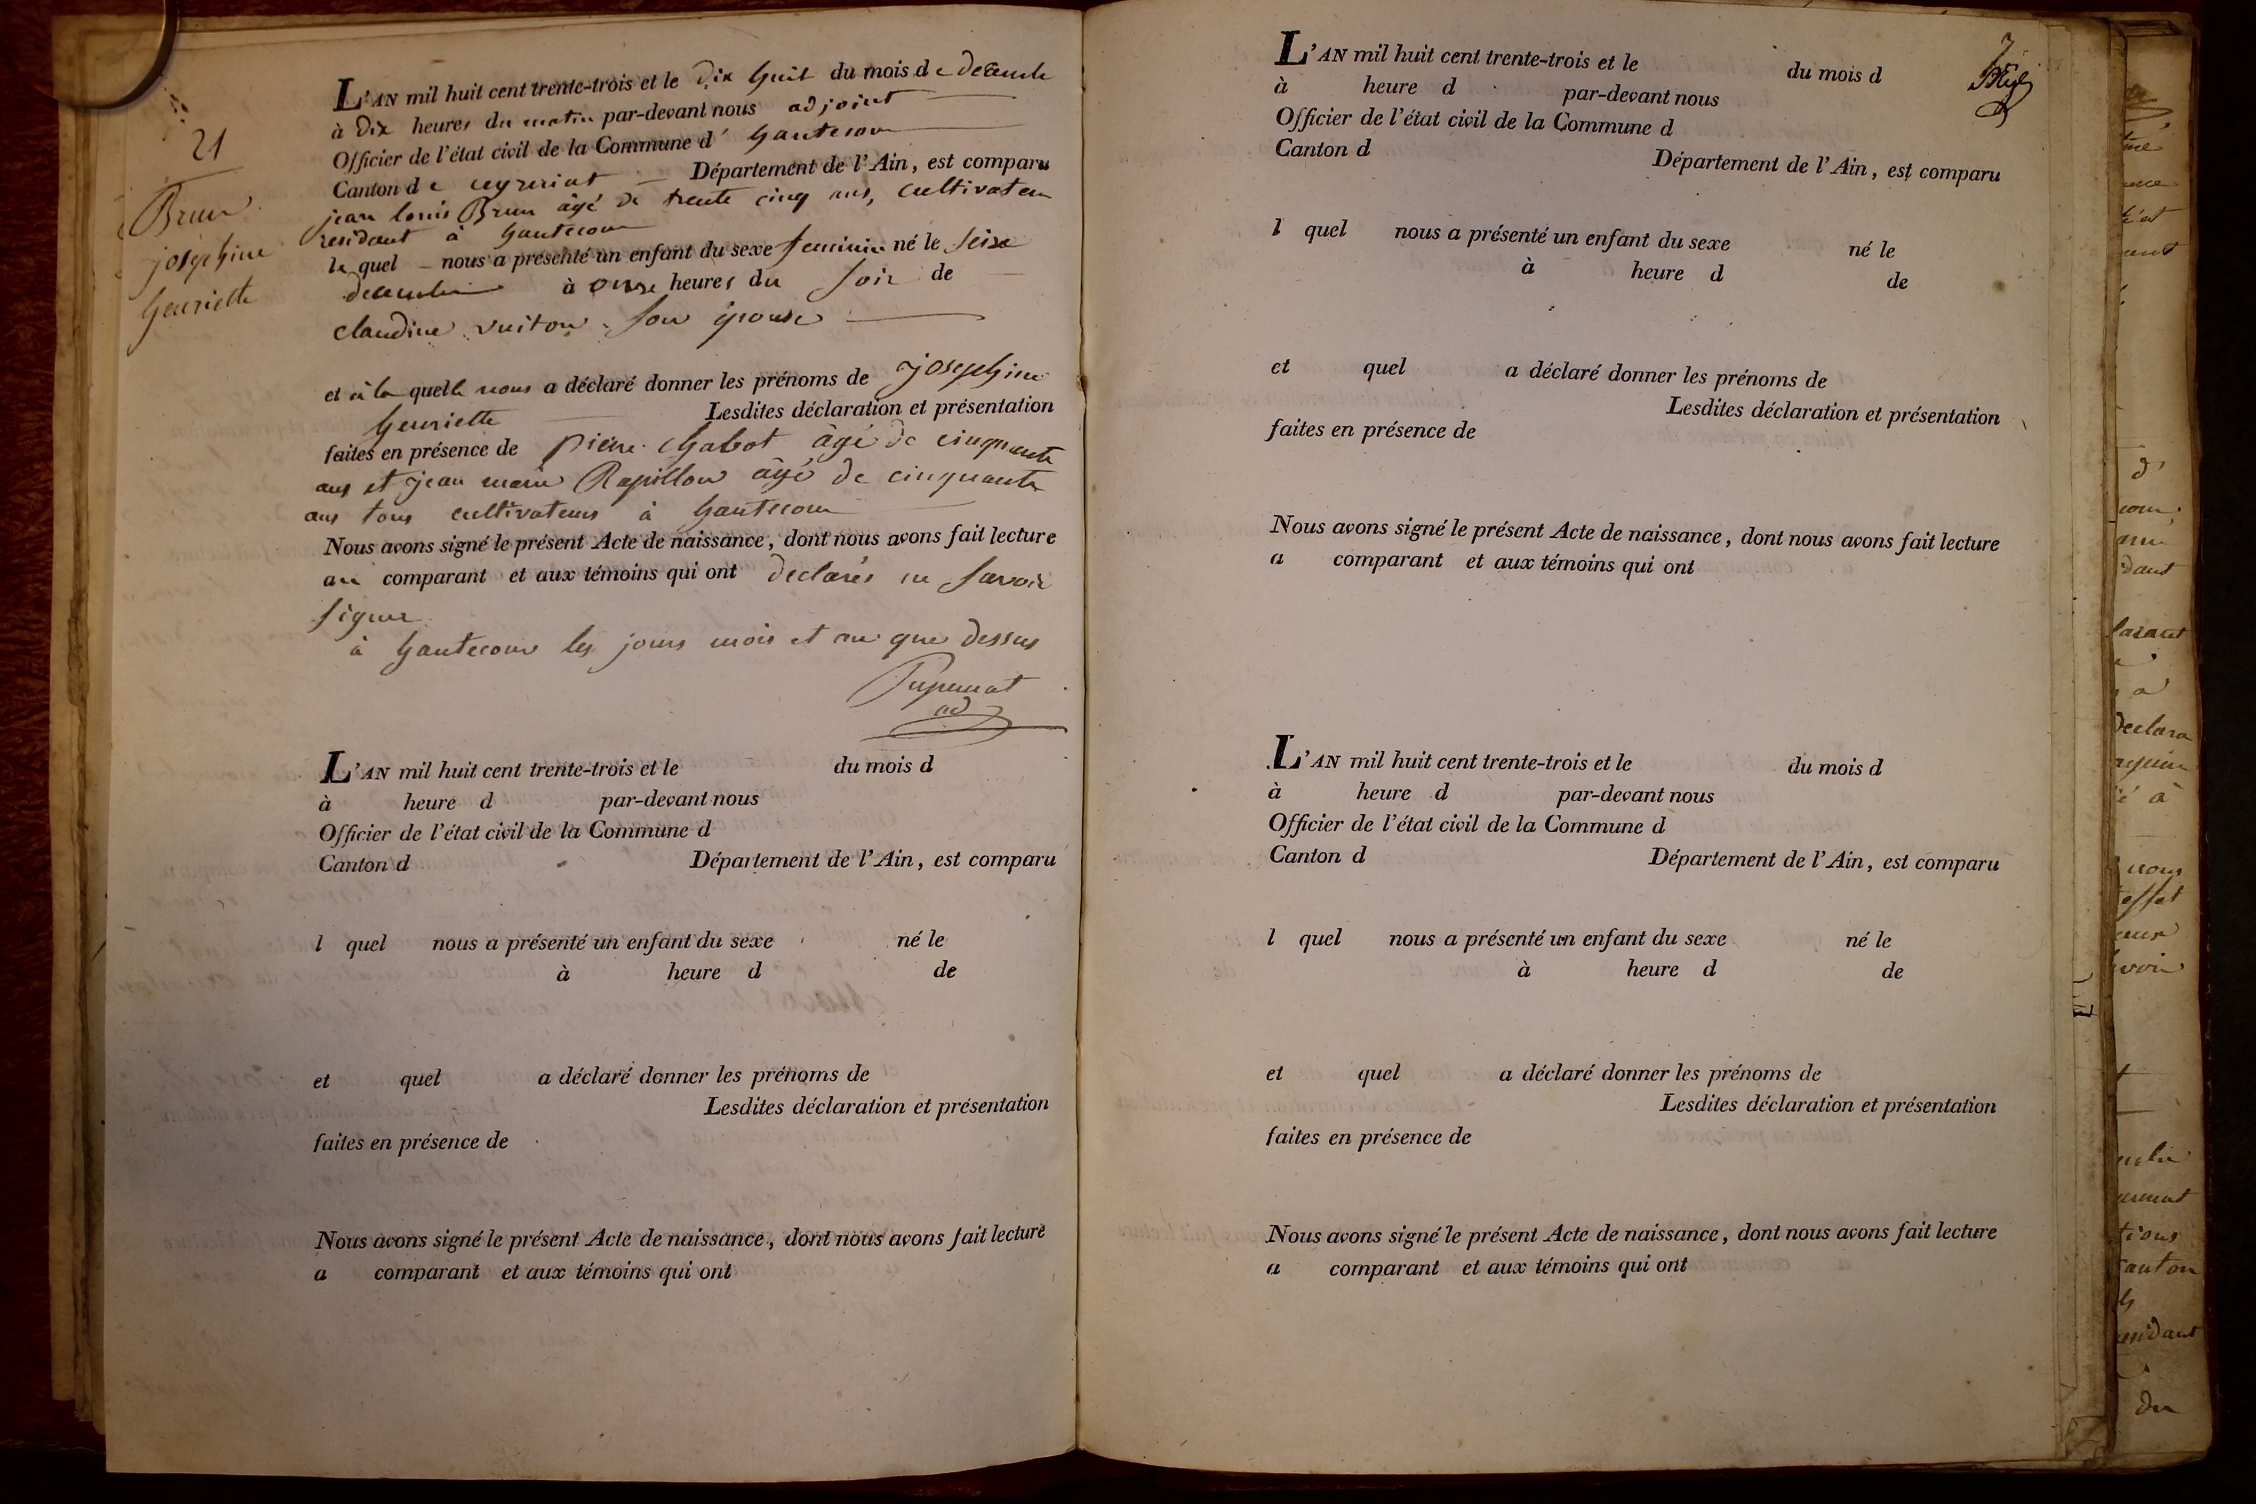 21
Brun
josephine
henriette
L'AN mil huit cent trente-trois et le dix huit du mois de decembre
à dix heures du matin par-devant nous adjoint
Officier de l'état civil de la Commune d' hautecour
Canton de ceyzeriat Département de l'Ain, est comparu
jean louis Brun âgé de trente cinq ans, cultivateur
residant à hautecour
le quel nous a présenté un enfant du sexe feminin né le seize
decembre à onze heures du soir de
claudine vuiton son épouse
et à la quelle nous a déclaré donner les prénoms de josephine
henriette Lesdites déclaration et présentation
faites en présence de pierre chabot âgé de cinquante
ans et jean marie Rapillon âgé de cinquante
ans tous cultivateurs à hautecour
Nous avons signé le présent Acte de naissance, dont nous avons fait lecture
au comparant et aux témoins qui ont declarés ne savoir
signer
à hautecour les jours mois et an que dessus
ad
L'AN mil huit cent trente-trois et le du mois d
à heure d par-devant nous
Officier de l'état civil de la Commune d
Canton d Département de l'Ain, est comparu
l quel nous a présenté un enfant du sexe né le
à heure d de
et quel a déclaré donner les prénoms de
Lesdites déclaration et présentation
faites en présence de
Nous avons signé le présent Acte de naissance, dont nous avons fait lecture
a comparant et aux témoins qui ont
7
L'AN mil huit cent trente-trois et le du mois d
à heure d par-devant nous
Officier de l'état civil de la Commune d
Canton d Département de l'Ain, est comparu
l quel nous a présenté un enfant du sexe né le
à heure d de
et quel a déclaré donner les prénoms de
Lesdites déclaration et présentation
faites en présence de
Nous avons signé le présent Acte de naissance, dont nous avons fait lecture
a comparant et aux témoins qui ont
L'AN mil huit cent trente-trois et le du mois d
à heure d par-devant nous
Officier de l'état civil de la Commune d
Canton d Département de l'Ain, est comparu
l quel nous a présenté un enfant du sexe né le
à heure d de
et quel a déclaré donner les prénoms de
Lesdites déclaration et présentation
faites en présence de
Nous avons signé le présent Acte de naissance, dont nous avons fait lecture
a comparant et aux témoins qui ont